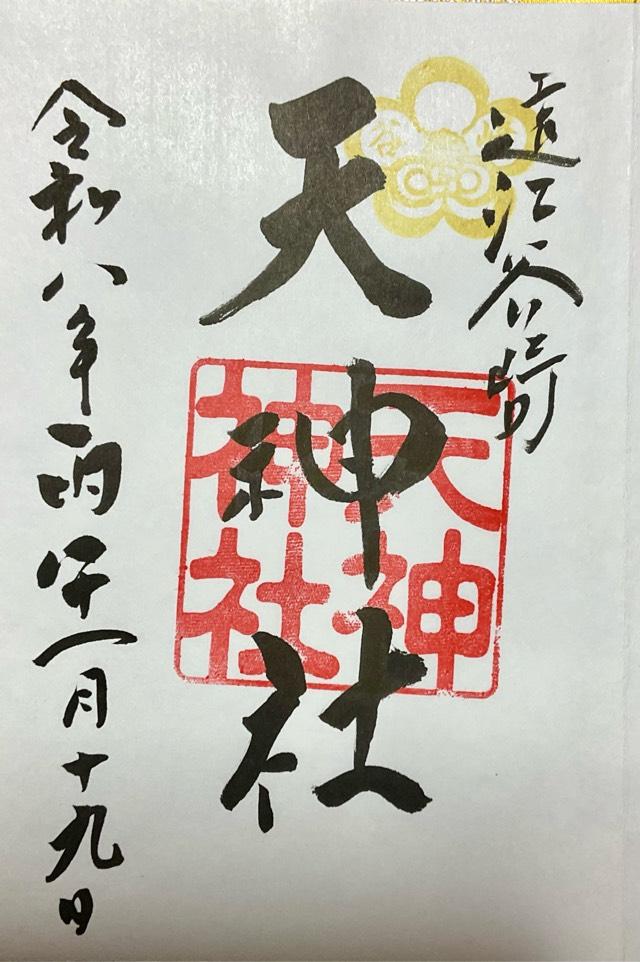 遠江谷崎
天神社
天神
神社
令和八年丙午一月十九日